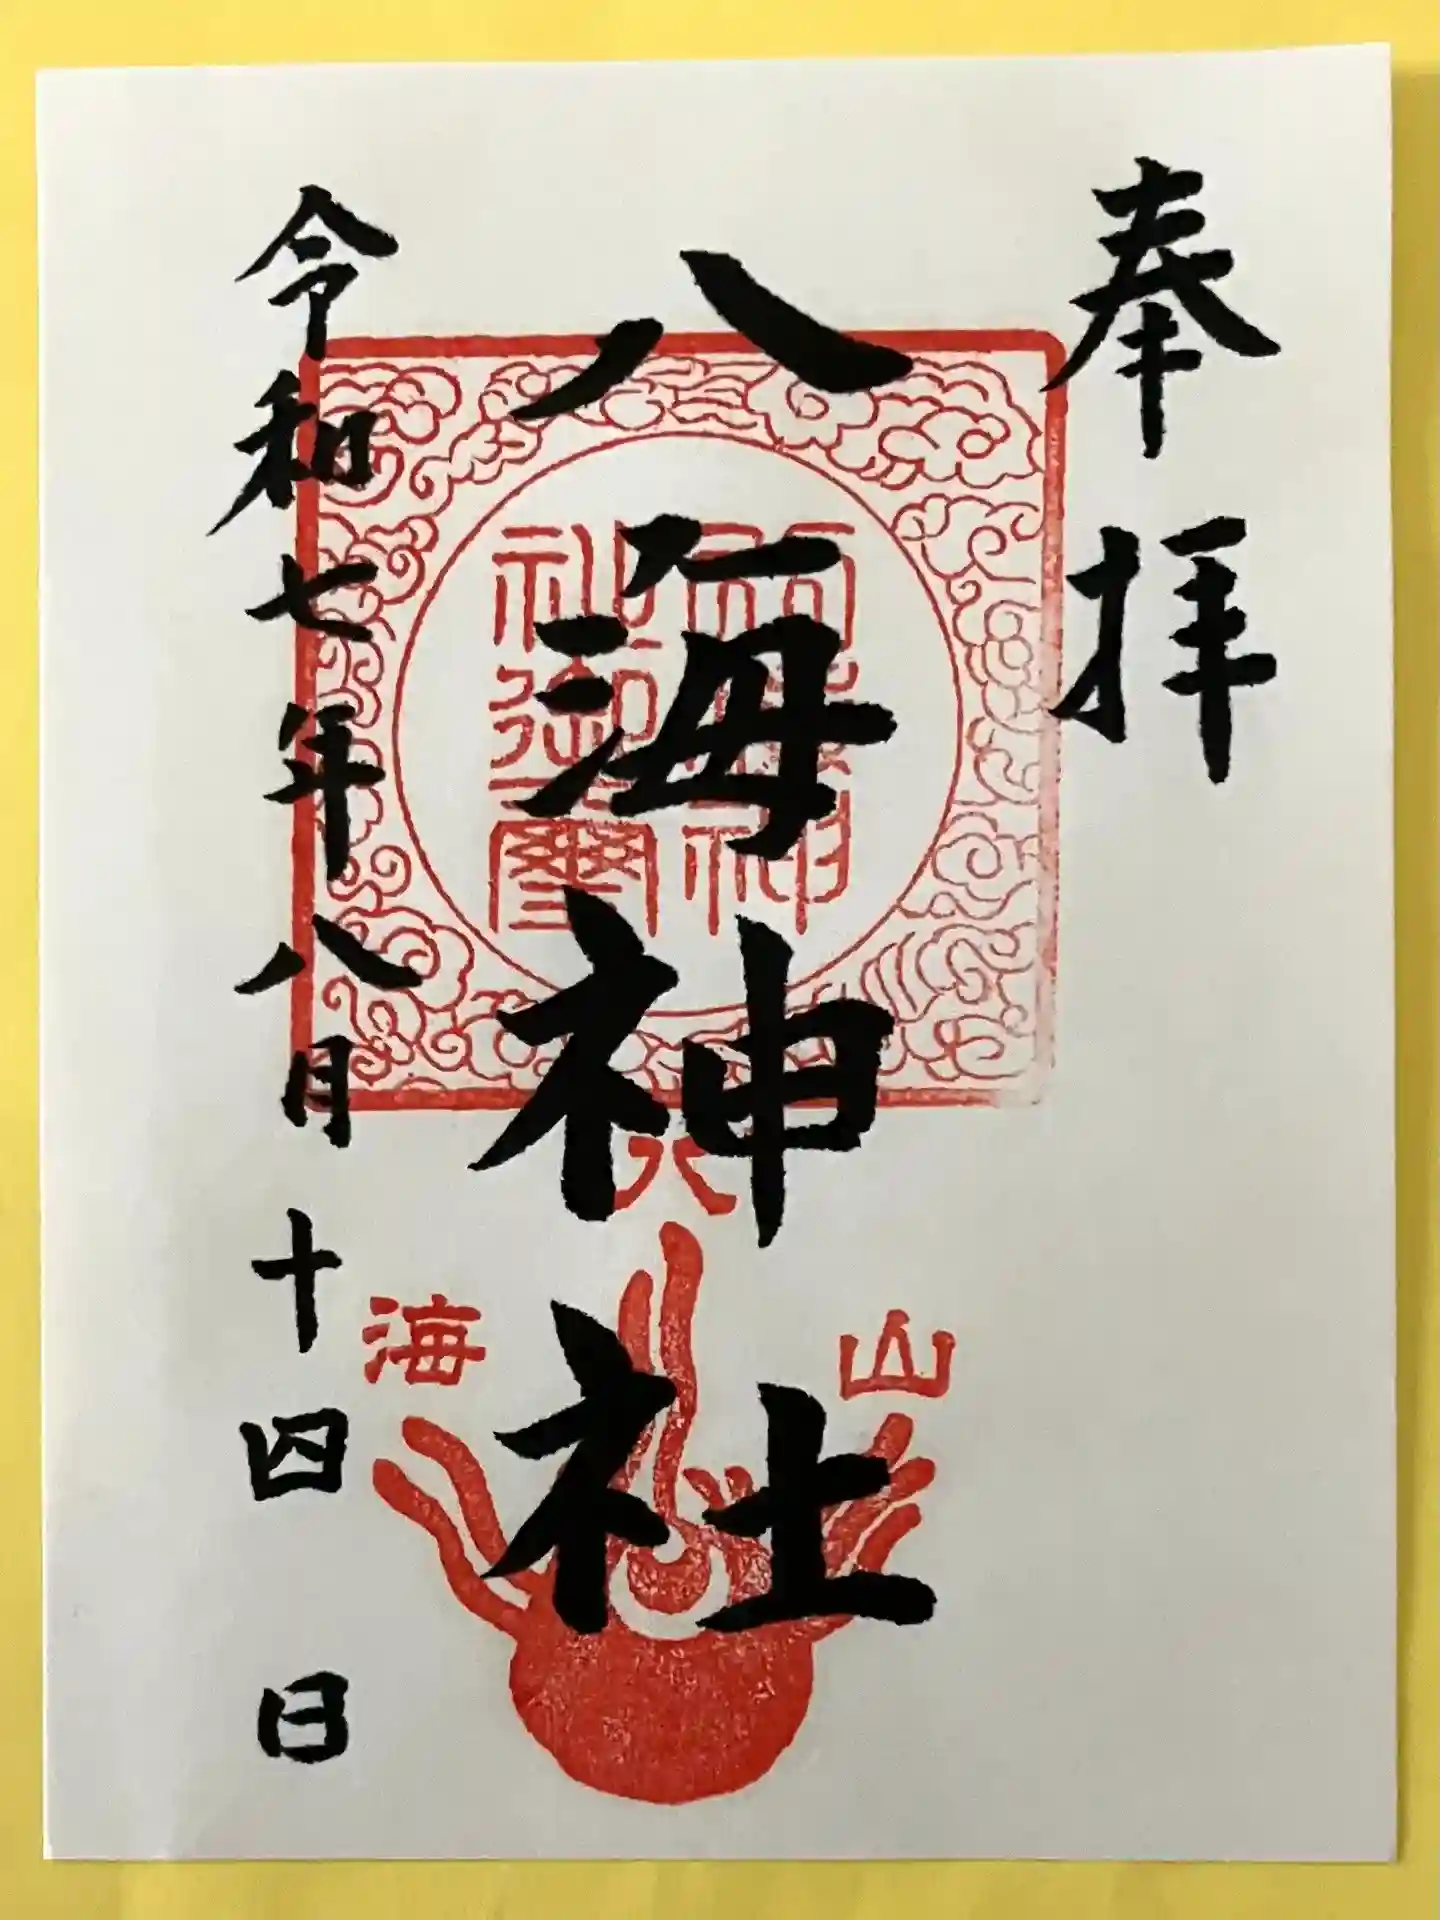 奉拝
八海神社
令和七年八月十四日
八
海
山